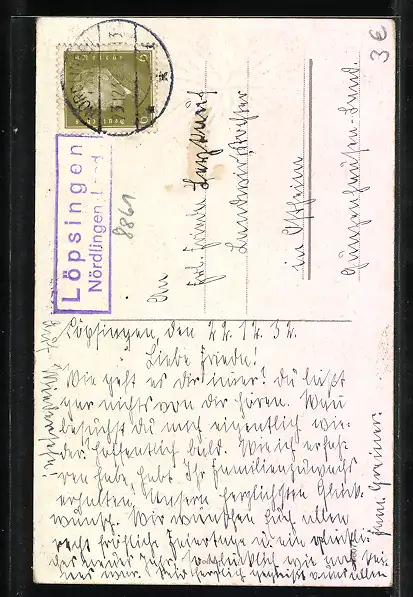 Löpsingen
Nördlingen Land
8861
3 €
An
Frl. Frieda
Landwirtstochter
in Ostheim
Gunzenhausen-Land.
Löpsingen, den 22.12.32.
Liebe Frieda!
Wie geht es dir immer? Du läßt
gar nichts von dir hören. Wann
besuchst Du mich eigentlich wie-
der? Hoffentlich bald. Wie ich erfah-
ren habe, habt Ihr Familienzuwachs
erhalten. Unsern herzlichsten Glück-
wunsch. Wir wünschen Euch allen
recht fröhliche Feiertage u. ein glückli-
ches neues Jahr!
Fam. Greiner.
Auf Wiedersehn!